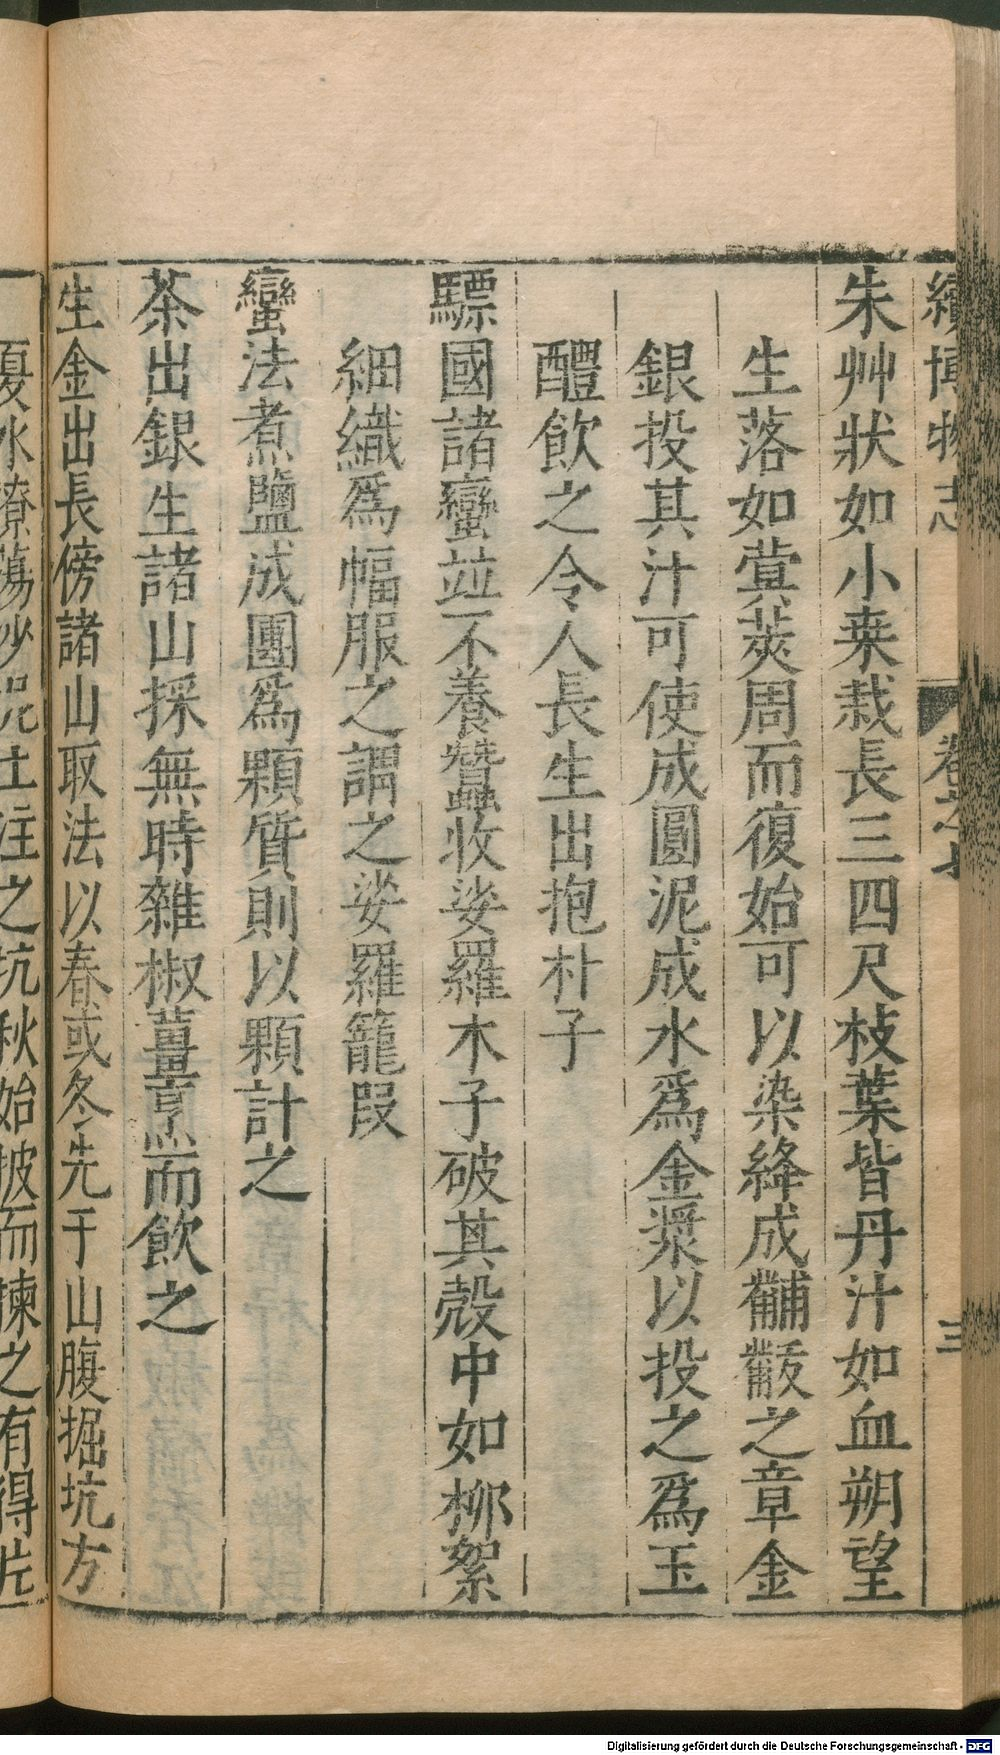 續博物志 卷之七 三
朱艸狀如小桒栽長三四尺枝葉皆丹汁如血朔望
生落如蓂莢周而復始可以染絳成黼黻之章金
銀投其汁可使成圓泥成水爲金漿以投之爲玉
醴飮之令人長生出抱朴子
驃國諸蠻竝不養蠶收娑羅木子破其殻中如柳絮
細織爲幅服之謂之娑羅籠叚
蠻法煮鹽成團爲顆質則以顆計之
茶出銀生諸山採無時雜椒薑烹而飮之
生金出長傍諸山取法以春或冬先于山腹掘坑方
夏水潦蕩沙泥土注之坑秋始披而揀之有得片
Digitalisierung gefördert durch die Deutsche Forschungsgemeinschaft - DFG